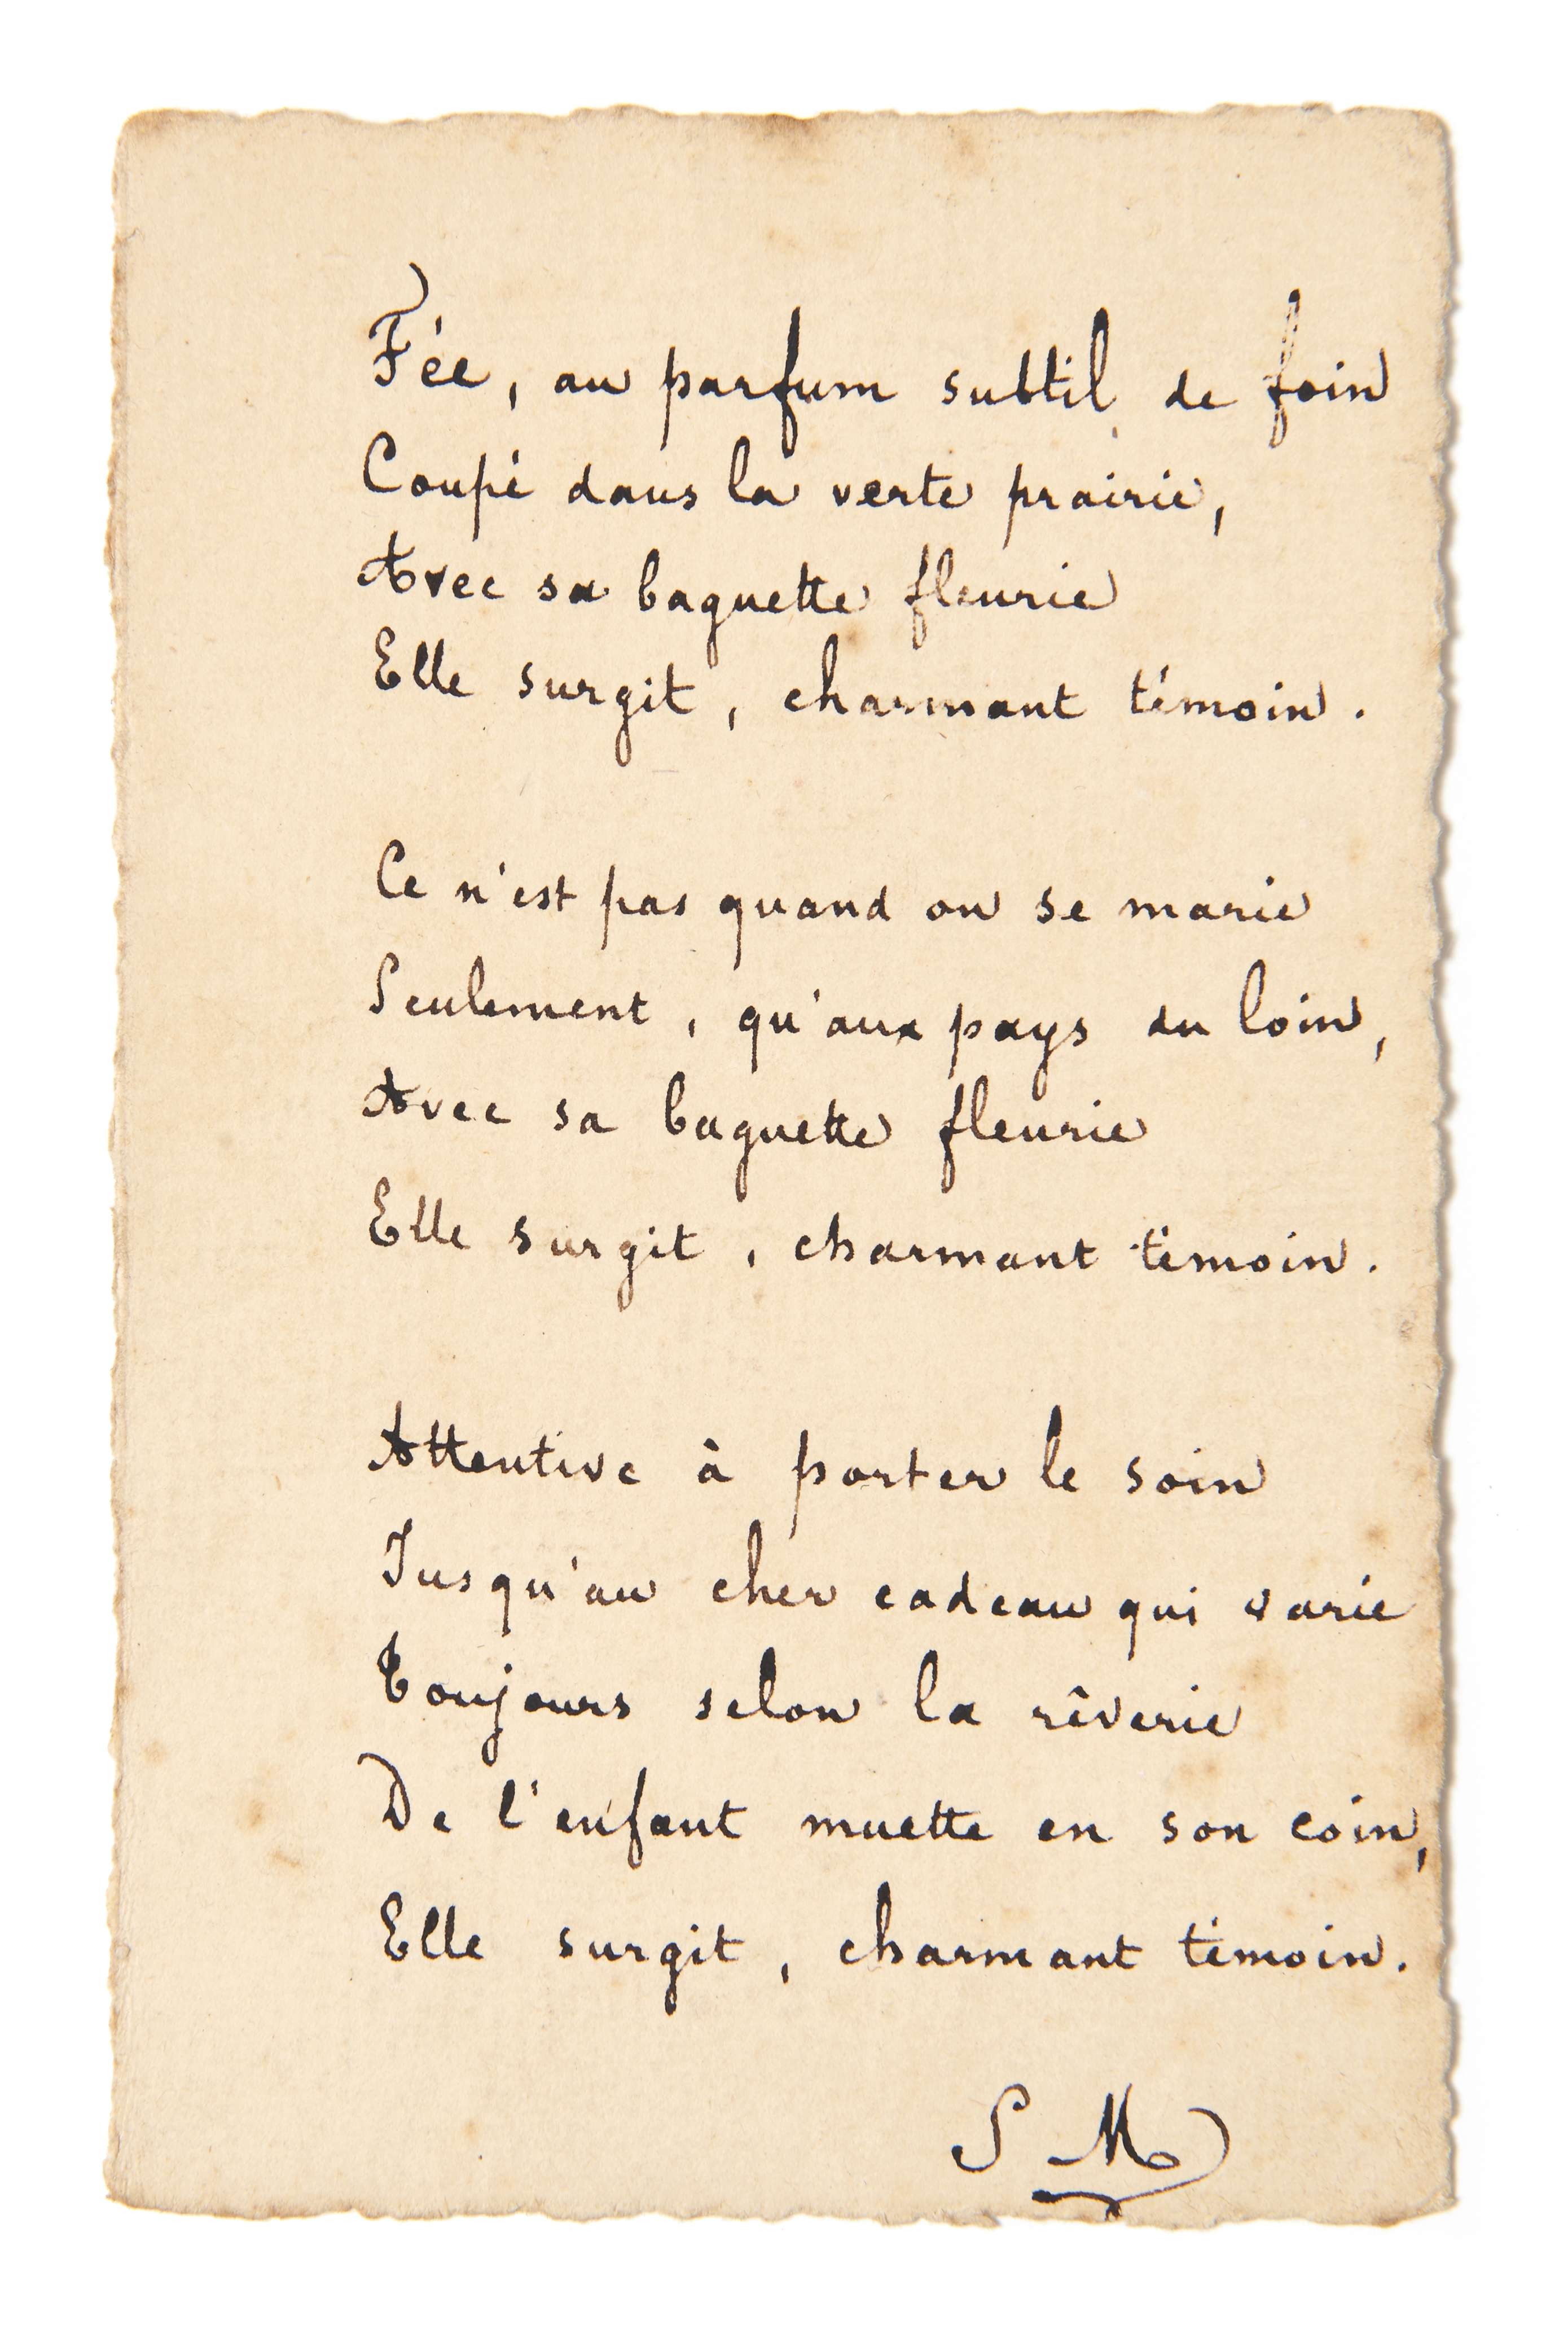 Fée, au parfum subtil de foin
Coupé dans la verte prairie,
Avec sa baguette fleurie
Elle surgit, charmant témoin.
Ce n'est pas quand on se marie
Seulement, qu'aux pays du loin,
Avec sa baguette fleurie
Elle surgit, charmant témoin.
Attentive à porter le soin
Jusqu'au cher cadeau qui varie
Toujours selon la rêverie
De l'enfant muette en son coin,
Elle surgit, charmant témoin.
S M